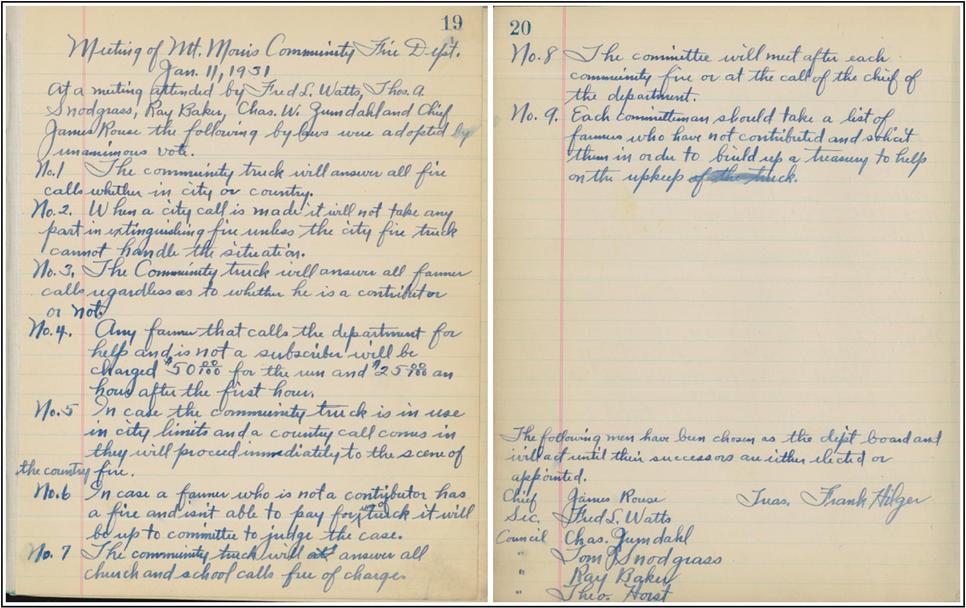 19
Meeting of Mt. Morris Community Fire Dept.
Jan. 11, 1931
At a meeting attended by Fred L. Watts, Thos. A.
Snodgrass, Ray Baker, Chas. W. Gumdahl and Chief
James Rouse the following by laws were adopted by
unanimous vote.
No.1 The community truck will answer all fire
calls whether in city or country.
No.2. When a city call is made it will not take any
part in extinguishing fire unless the city fire truck
cannot handle the situation.
No.3. The Community truck will answer all farmer
calls regardless as to whether he is a contributor
or not.
No.4. Any farmer that calls the department for
help and is not a subscriber will be
charged $50 00/100 for the run and $25 00/100 an
hour after the first hour.
No.5 In case the community truck is in use
in city limits and a country call comes in
they will proceed immediately to the scene of
the country fire.
No.6 In case a farmer who is not a contributor has
a fire and isn't able to pay for truck it will
be up to committee to judge the case.
No. 7 The community truck will answer all
church and school calls free of charge.
20
No.8 The committee will meet after each
community fire or at the call of the chief of
the department.
No. 9. Each committeeman should take a list of
farmers who have not contributed and solicit
them in order to build up a treasury to help
on the upkeep of the truck.
The following men have been chosen as the dept board and
will act until their successors are either elected or
appointed.
Chief James Rouse Treas. Frank Hilger
Sec. Fred L. Watts
Council Chas. Gumdahl
" Tom Snodgrass
" Ray Baker
" Theo. Horst